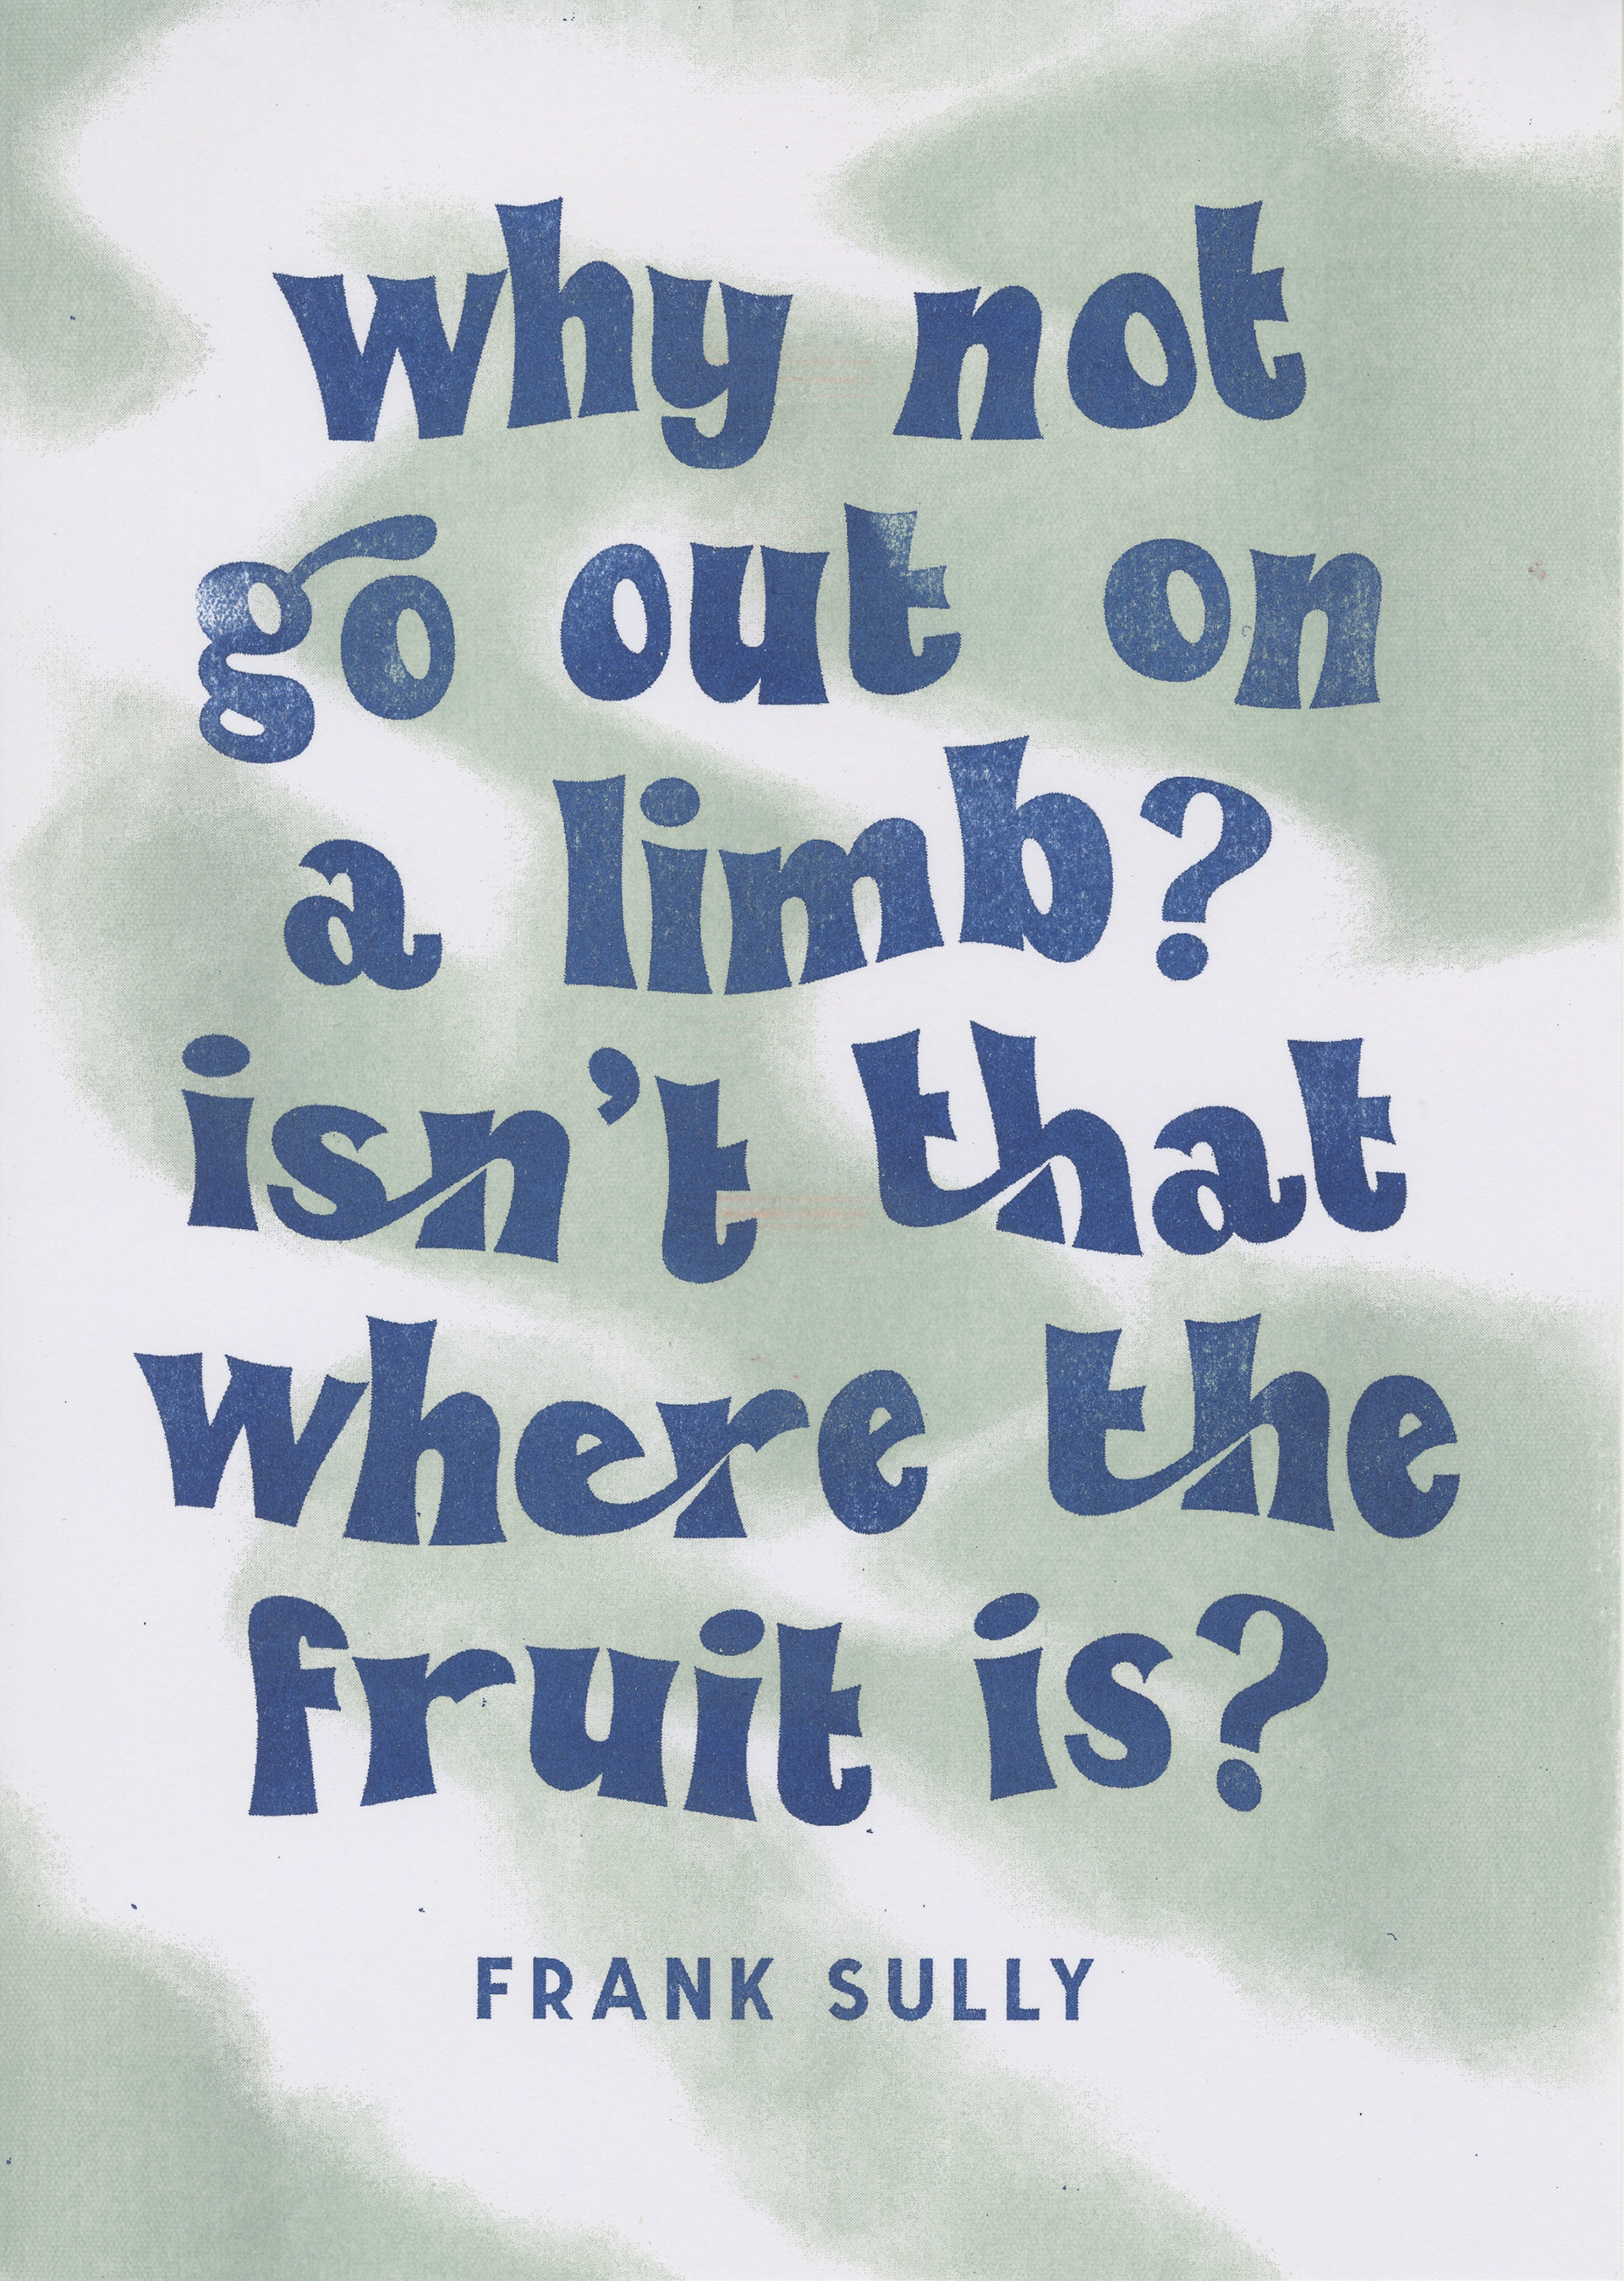 why not
go out on
a limb?
isn't that
where the
fruit is?
FRANK SULLY